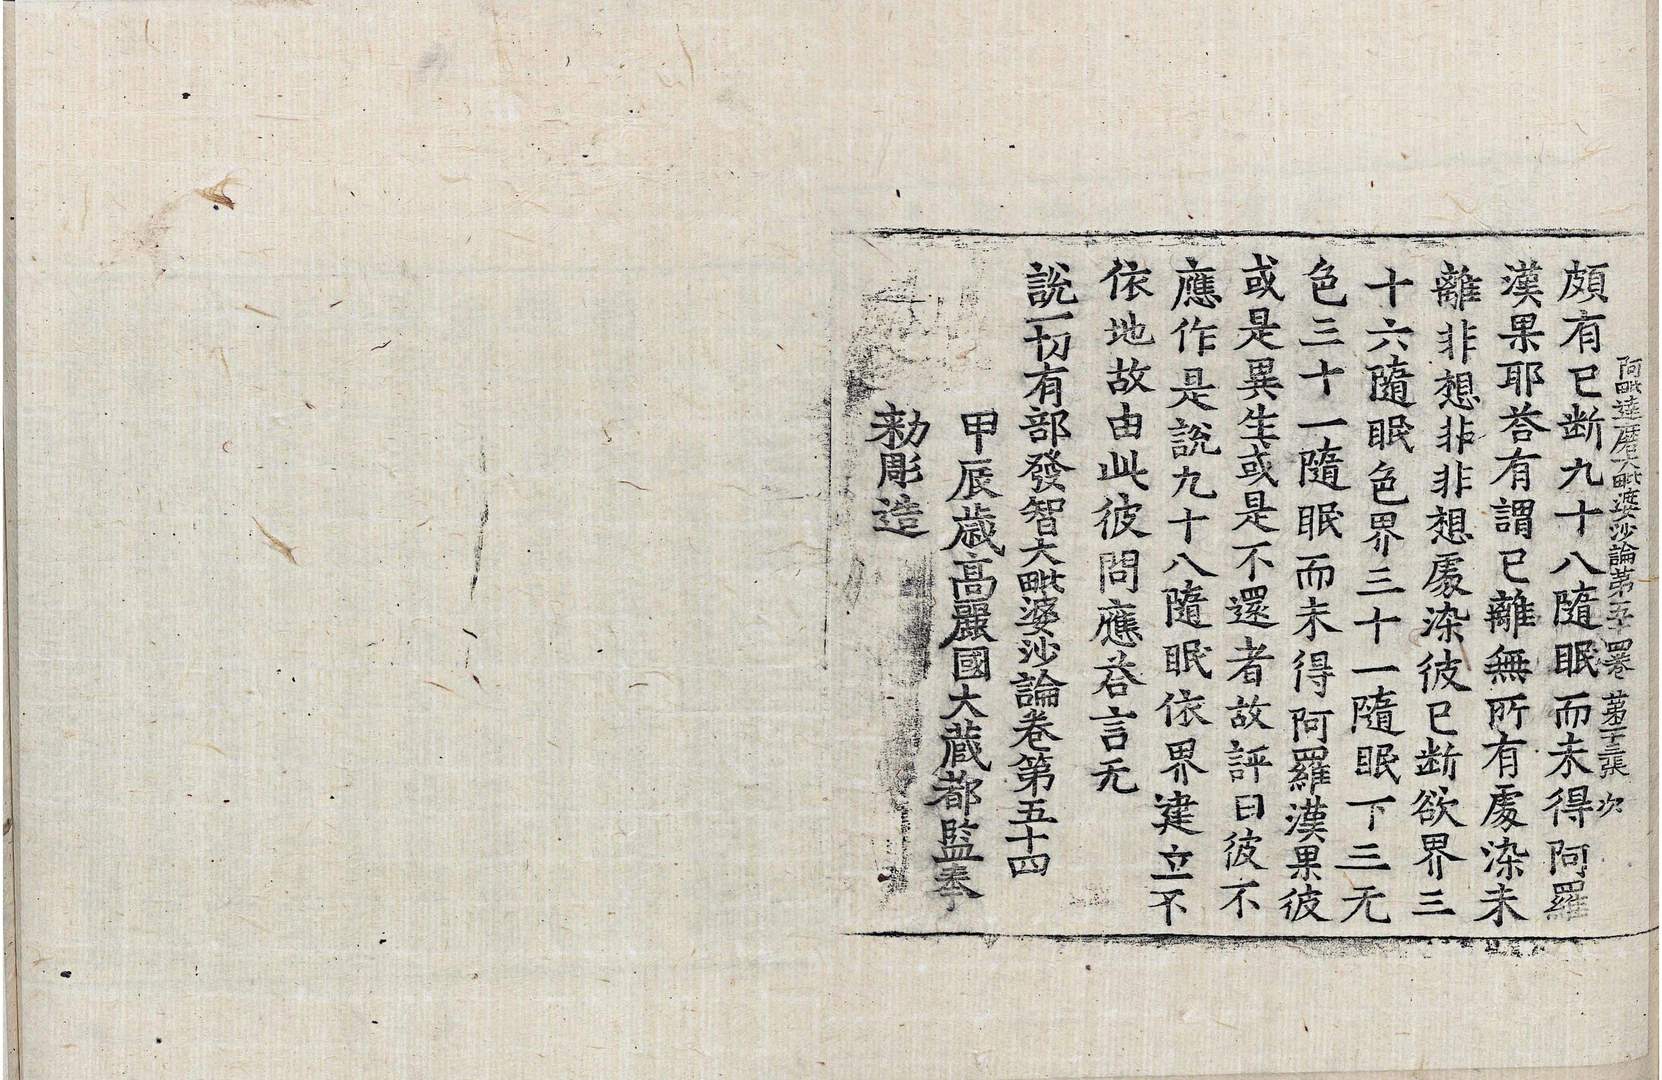 阿毗達磨大毗婆沙論第五十四卷 第十三張 次
頗有已断九十八隨眠而未得阿羅
漢果耶荅有謂已離無所有處染未
離非想非非想處染彼已断欲界三
十六隨眠色界三十一隨眠下三无
色三十一隨眠而未得阿羅漢果彼
或是異生或是不還者故評曰彼不
應作是說九十八隨眠依界建立不
依地故由此彼問應荅言无
說一切有部發智大毗婆沙論卷第五十四
甲辰歳高麗國大藏都監奉
勑彫造